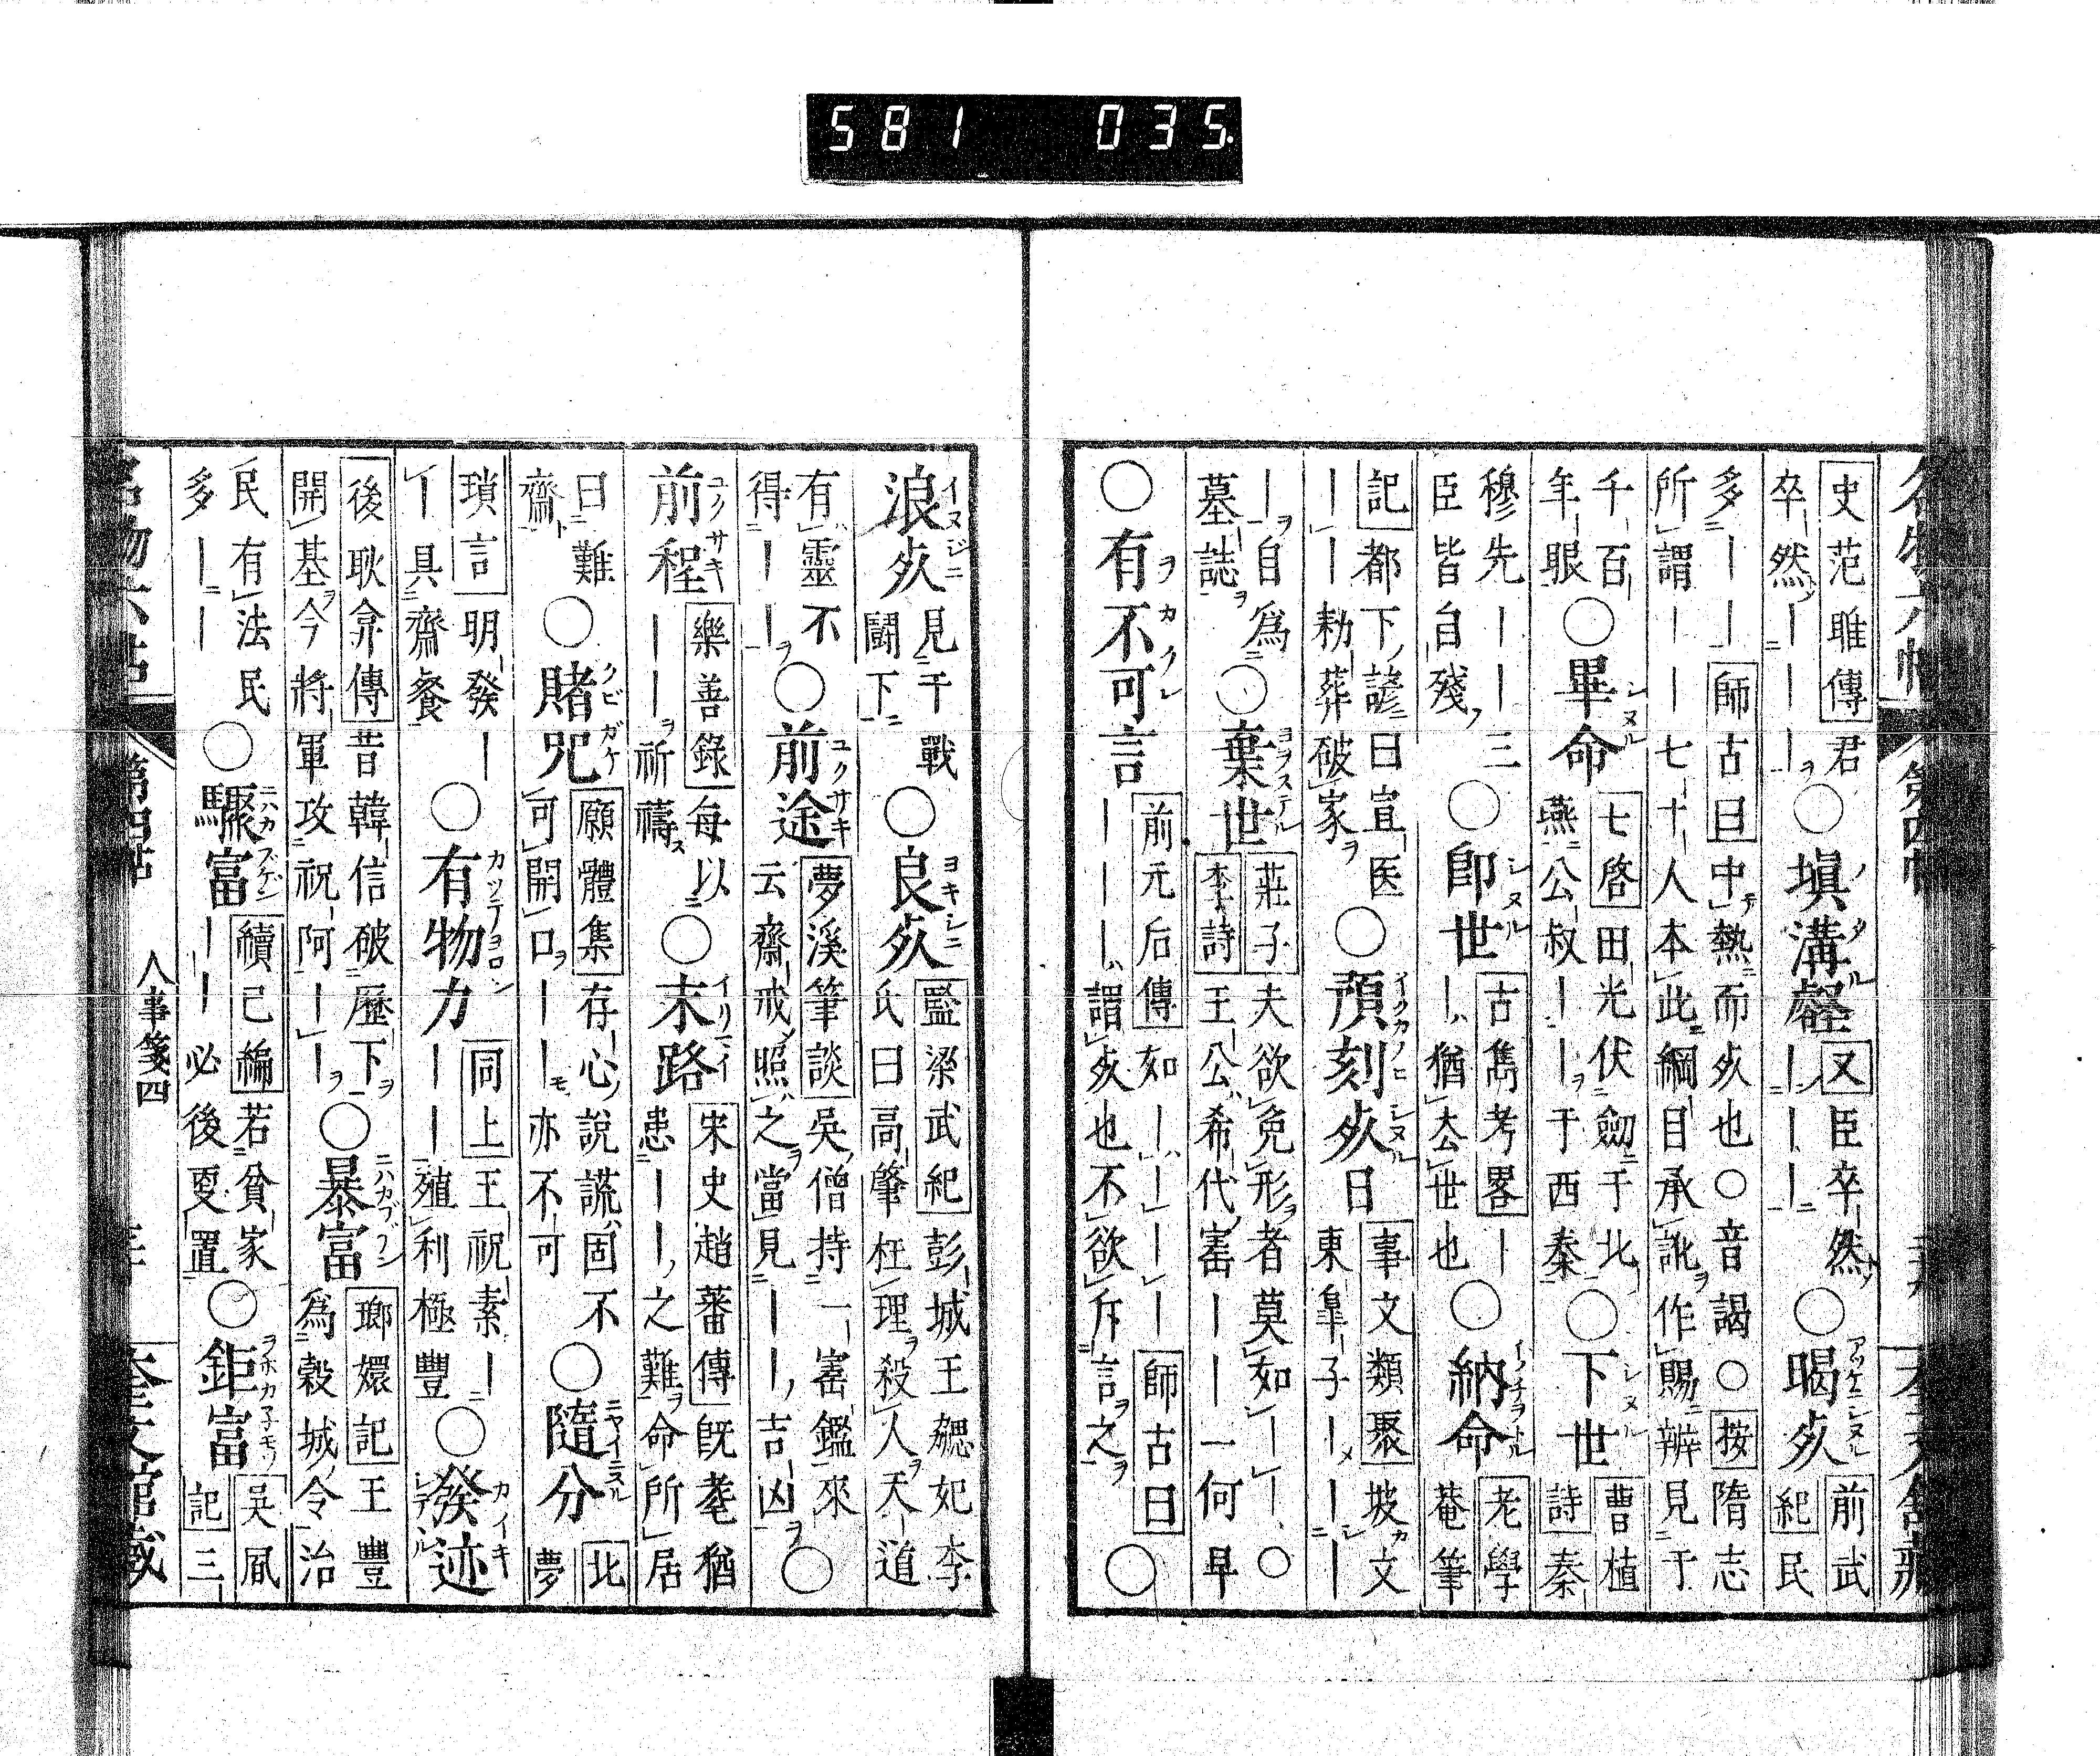 581 035.
名物六帖 第四帖 奎文舘藏
史范雎傳君卒然｜｜｜○填溝壑又臣卒然｜｜｜○暍死前武紀民
多｜｜師古曰中熱而死也○音謁○按隋志所謂｜｜｜七十人本此綱目承訛作賜辨見于
千百年眼○畢命七啓田光伏劔于北燕公叔｜｜于西秦○下世曹植詩秦
穆先｜｜三臣皆自殘○卽世古雋考畧｜｜猶去世也○納命老學菴筆
記都下諺曰宣医｜｜｜勑葬破家○預刻死日事文類聚坡文東皐子｜｜｜
｜自爲墓誌○棄世莊子夫欲免形者莫如｜｜○李詩王公希代寳｜｜一何早
○有不可言前元后傳如｜｜｜師古曰｜｜｜謂死也不欲斥言之○
浪死見干戰鬭下○良死監梁武紀彭城王勰妃李氏曰高肇枉理殺人天道
有靈不得｜｜○前途夢溪筆談吳僧持一寳鑑來云齋戒照之當見｜｜吉凶○
前程樂善錄每以｜｜祈禱○末路宋史趙蕃傳旣耄猶患｜｜之難命所居
曰難齋○賭咒願體集存心說謊固不可開口｜｜亦不可○隨分北夢
瑣言明發｜｜具齋餐○有物力同上王祝素｜｜｜殖利極豐○發迹
後耿弇傳昔韓信破歷下開基今將軍攻祝阿｜｜○暴富瑯嬛記王豐爲穀城令治
民有法民多｜｜○驟富續已編若貧家｜｜必後更置○鉅富吳風記三
名物六帖 第四帖 人事箋四 奎文館藏